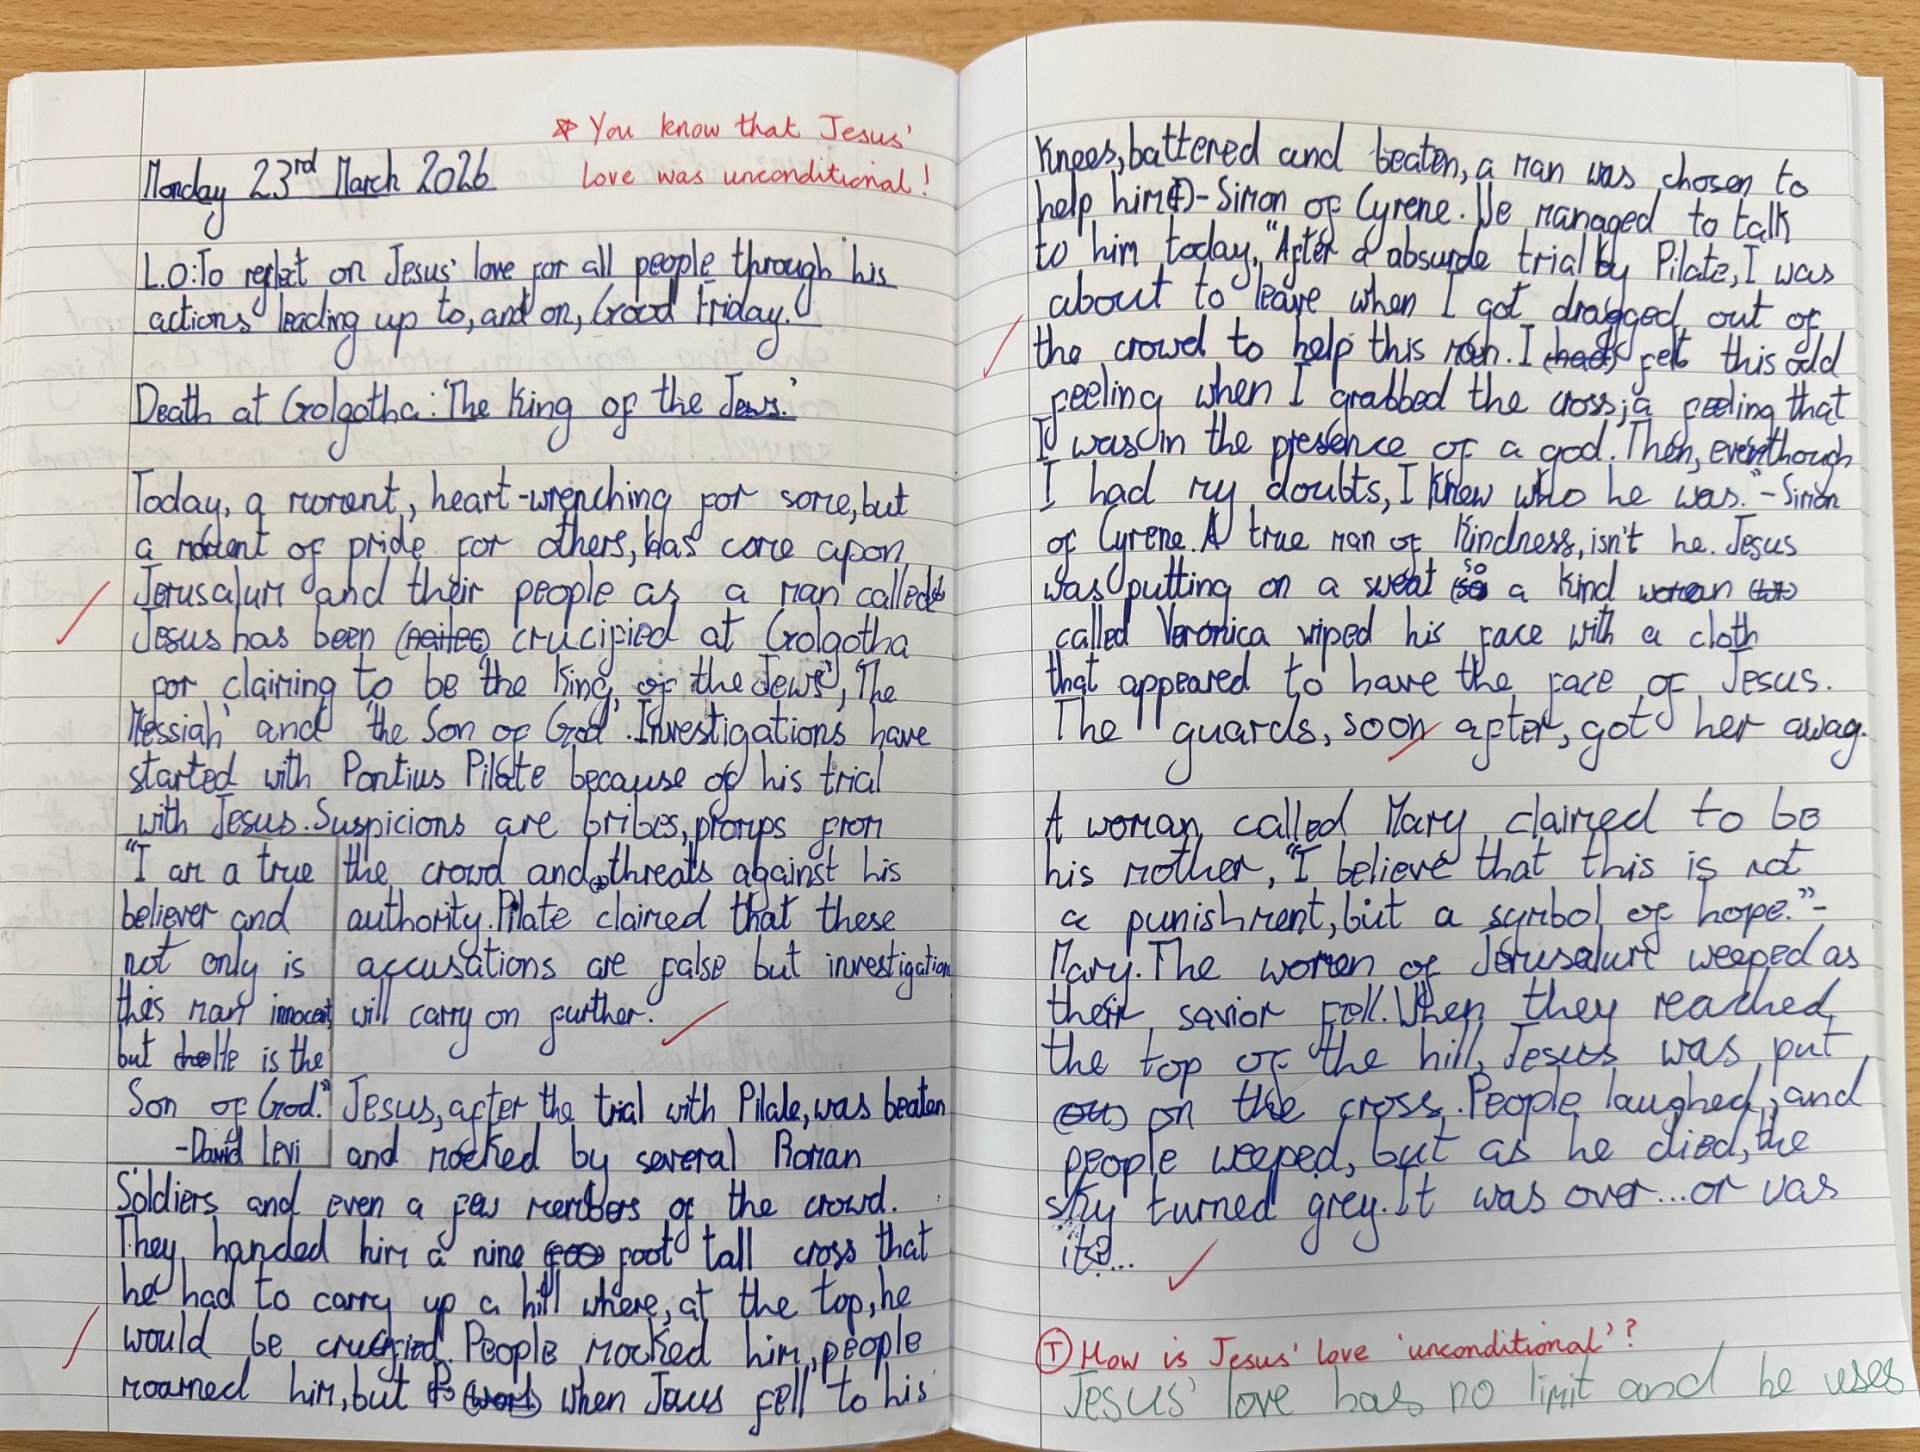 * You know that Jesus'
love was unconditional!
Monday 23rd March 2026
L.O:To reflect on Jesus' love for all people through his
actions leading up to, and on, Good Friday.
Death at Golgotha: 'The King of the Jews.'
Today, a moment, heart-wrenching for some, but
a moment of pride for others, has come upon
Jerusalum and their people as a man called
Jesus has been (nailed) crucified at Golgotha
for claiming to be 'the King of the Jews', 'The
Messiah' and 'the Son of God'. Investigations have
started with Pontius Pilate because of his trial
with Jesus. Suspicions are bribes, promps from
the crowd and threats against his
authority. Pilate claimed that these
accusations are false but investigation
will carry on further.
"I am a true
believer and
not only is
this man innocent,
but He is the
Son of God."
-David Levi
Jesus, after the trial with Pilate, was beaten
and mocked by several Roman
Soldiers and even a few members of the crowd.
They handed him a nine foot tall cross that
he had to carry up a hill where, at the top, he
would be crucified. People mocked him, people
moarned him, but when Jesus fell to his
Knees, battered and beaten, a man was chosen to
help him - Simon of Cyrene. We managed to talk
to him today, "After a absurde trial by Pilate, I was
about to leave when I got dragged out of
the crowd to help this man. I (had) felt this odd
feeling when I grabbed the cross; a feeling that
I was in the presence of a god. Then, eventhough
I had my doubts, I Knew who he was." - Simon
of Cyrene. A true man of Kindness, isn't he. Jesus
was putting on a sweat so a Kind woman
called Veronica wiped his face with a cloth
that appeared to have the face of Jesus.
The guards, soon after, got her away.
A woman called Mary claimed to be
his mother, "I believe that this is not
a punishment, but a symbol of hope." -
Mary. The women of Jerusalum weeped as
their savior fell. When they reached
the top of the hill, Jesus was put
on the cross. People laughed, and
people weeped, but as he died, the
sky turned grey. It was over... or was
it?...
(T) How is Jesus' love 'unconditional'?
Jesus' love has no limit and he uses